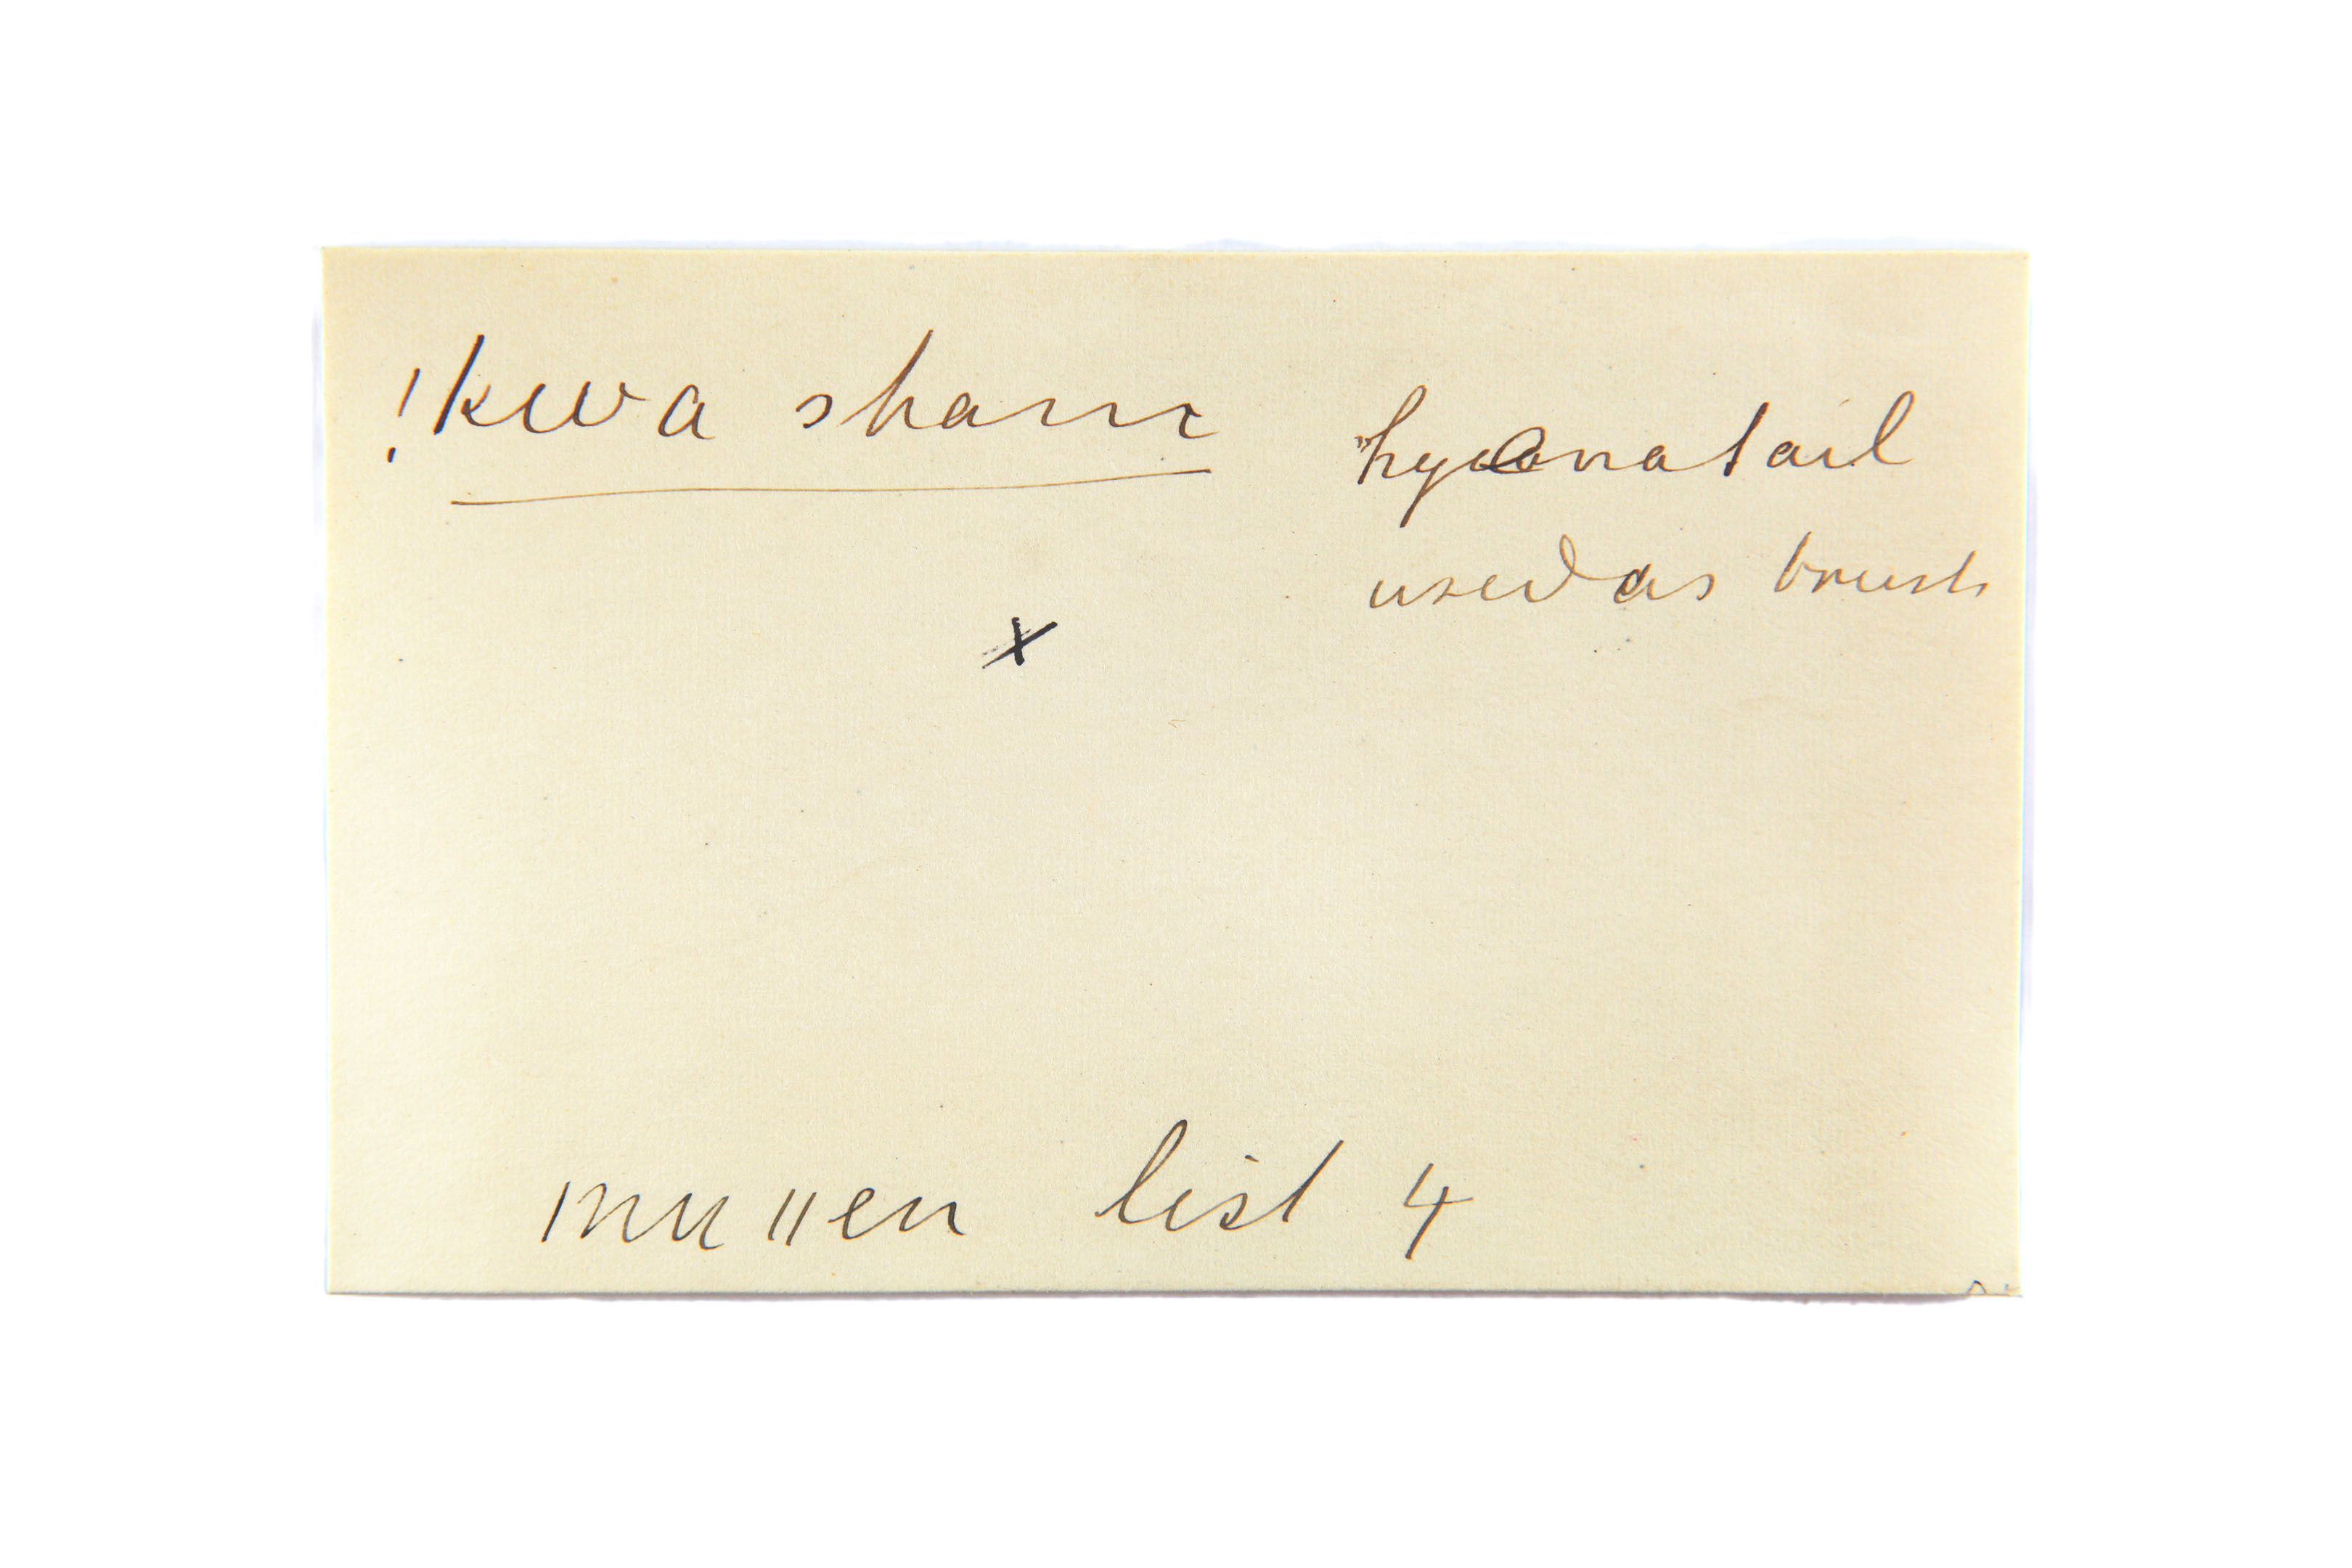 !kwa sham
hyaena tail
used as brush
x
mullen list 4